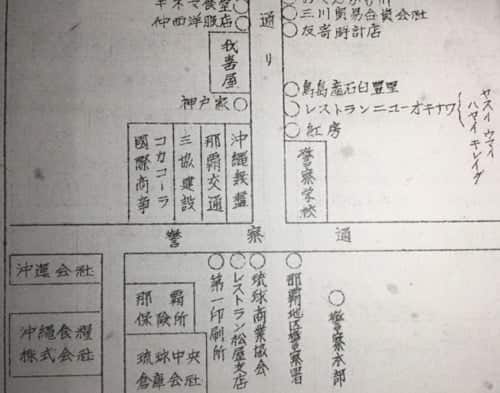 キネマ食堂
仲西洋服店
通り
三川貿易合資会社
友寄時計店
我喜屋
神戸家
鳥島産石臼豊里
レストランニューオキナワ
ヤスイ ウマイ
ハヤイ キレイダ
紅房
警察学校
沖縄無盡
那覇交通
三協建設
コカコーラ
國際商事
警察通
沖運会社
沖縄食糧
株式会社
那覇
保険所
琉球中央
倉庫会社
第一印刷所
レストラン松屋支店
琉球商業協会
那覇地区警察署
警察本部